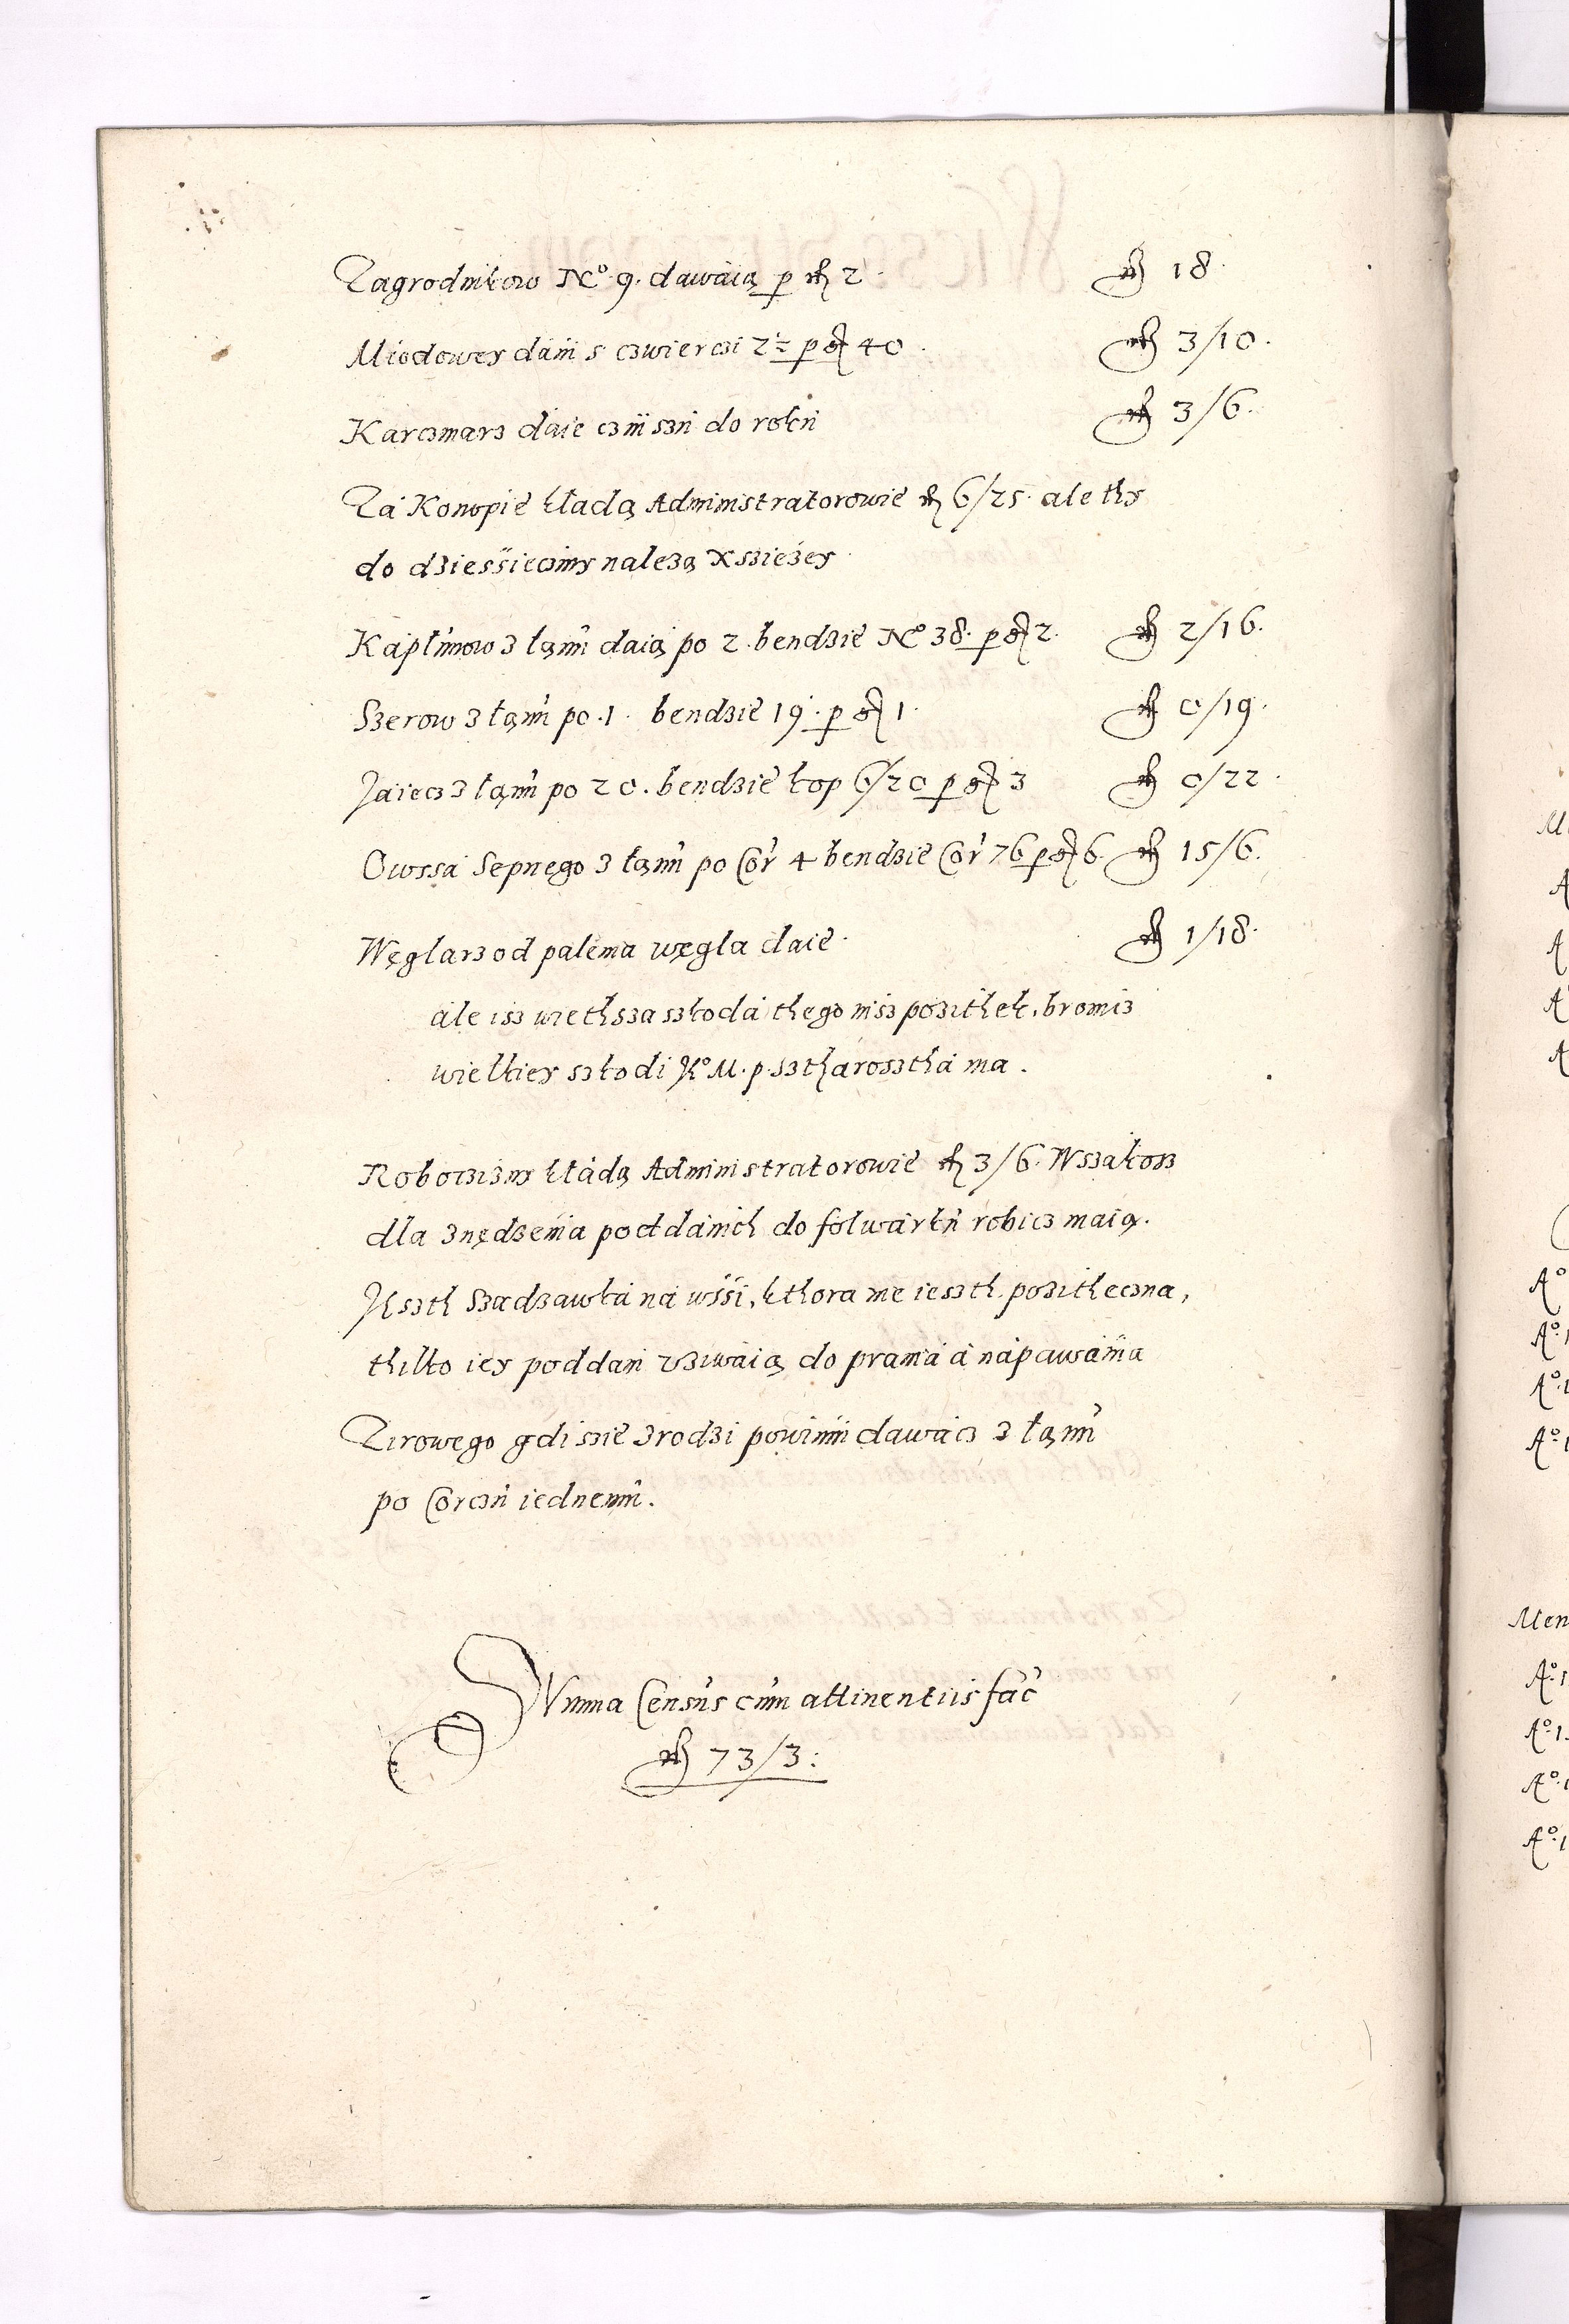 Zagrodnikow No. 9. dawaią p fl 2. fl 18.
Miodowey dani s czwierczi 2½ p gr 40. fl 3/10.
Karczmarz daie czinszu do roku fl 3/6.
Za Konopie kładą Administratorowie fl 6/25. ale thy
do dziessiecziny nalezą xsziezey
Kapłunow z łanu daią po 2. bendzie No 38. p gr 2. fl 2/16.
Szerow z łanu po .1. bendzie 19. p gr 1. fl 0/19.
Jaiecz z łanu po 20. bendzie kop 6/20 p gr 3 fl 0/22.
Owssa Sepnego z łanu po Cor 4 bendzie Cor 76 p gr 6. fl 15/6.
Węglarz od palenia węgla daie. fl 1/18.
ale isz wiethsza szkoda thego nisz pozithek, bronicz
wielkiey szkodi Ko M. p. sztharosztha ma.
Robocziszny kładą Administratorowie fl 3/6. Wszakosz
dla znędzenia poddanich do folwarku robicz maią.
Jeszth Szadzawka na wssi, kthora nie ieszth pozitheczna,
thilko iey poddani uziwaią do prania a napawania
Zirowego gdi szie zrodzi powinni dawacz z łanu
po Corczu iednemu.
SVmma Census cum attinentiis fac
fl 73/3: